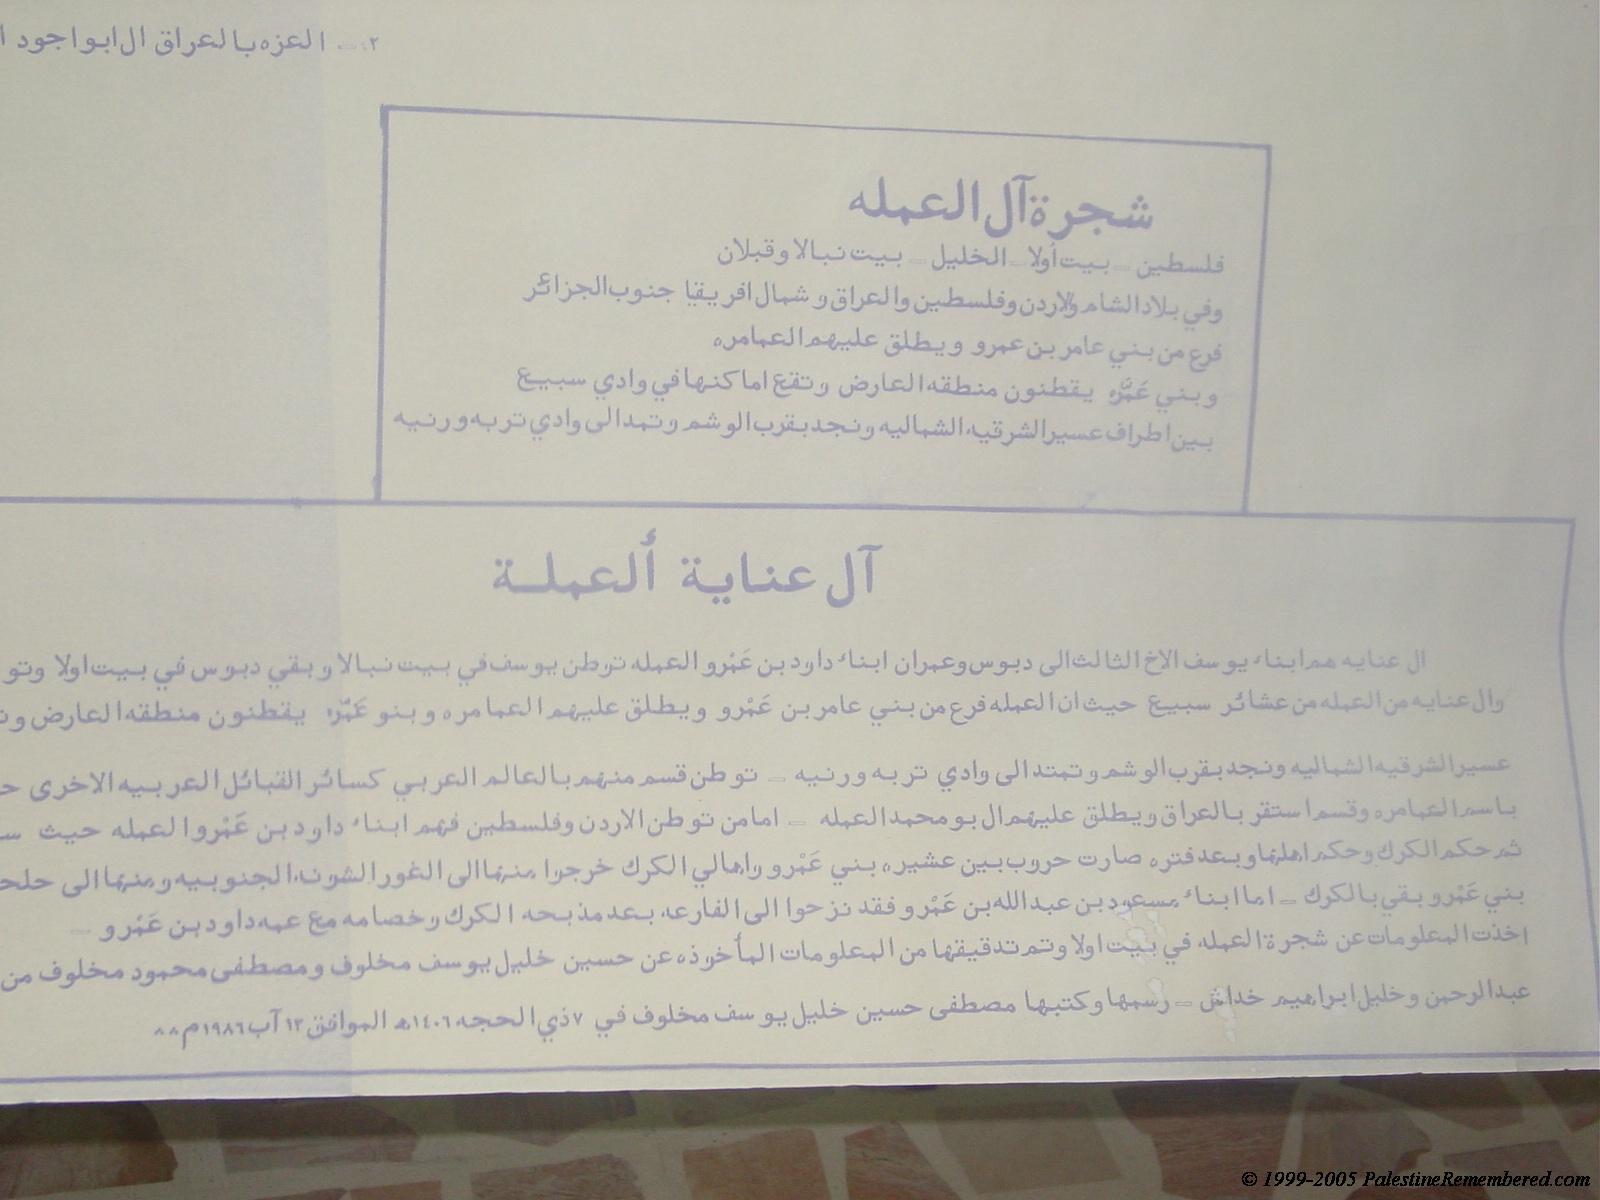 ٢:ــ العزه بالعراق ال ابو اجود
شجرة آل العمله
فلسطين ــ بيت أولا ــ الخليل ــ بيت نبالا وقبلان
وفي بلاد الشام والاردن وفلسطين والعراق وشمال افريقيا جنوب الجزائر
فرع من بني عامر بن عمرو ويطلق عليهم العمامره
وبني عَمْره يقطنون منطقه العارض وتقع اماكنها في وادي سبيع
بين اطراف عسير الشرقيه الشماليه ونجد بقرب الوشم وتمد الى وادي تربه ورنيه
آل عناية ألعملــة
ال عنايه هم ابناء يوسف الاخ الثالث الى دبوس وعمران ابناء داود بن عَمْرو العمله توطن يوسف في بيت نبالا وبقي دبوس في بيت اولا وتو
وال عنايه من العمله من عشائر سبيع حيث ان العمله فرع من بني عامر بن عَمْرو ويطلق عليهم العمامره وبنو عَمْره يقطنون منطقه العارض
عسير الشرقيه الشماليه ونجد بقرب الوشم وتمتد الى وادي تربه ورنيه ــ توطن قسم منهم بالعالم العربي كسائر القبائل العربيه الاخرى
باسم العمامره وقسم استقر بالعراق ويطلق عليهم ال بو محمد العمله ــ اما من توطن الاردن وفلسطين فهم ابناء داود بن عَمْرو العمله حيث
ثم حكم الكرك وحكم اهلها وبعد فتره صارت حروب بين عشيره بني عَمْرو واهالي الكرك خرجوا منها الى الغور الشونه الجنوبيه ومنها الى حلحـ
بني عَمْرو بقي بالكرك ــ اما ابناء مسعود بن عبدالله بن عَمْرو فقد نزحوا الى الفارعه بعد مذبحه الكرك وخصامه مع عمه داود بن عَمْرو ــ
اخذت المعلومات عن شجرة العمله في بيت اولا وتم تدقيقها من المعلومات المأخوذه عن حسين خليل يوسف مخلوف ومصطفى محمود مخلوف من
عبدالرحمن وخليل ابراهيم خداش ــ رسمها وكتبها مصطفى حسين خليل يوسف مخلوف في ٧ ذي الحجه ١٤٠٦هـ الموافق ١٢ آب ١٩٨٦م ٨٨
© 1999-2005 PalestineRemembered.com